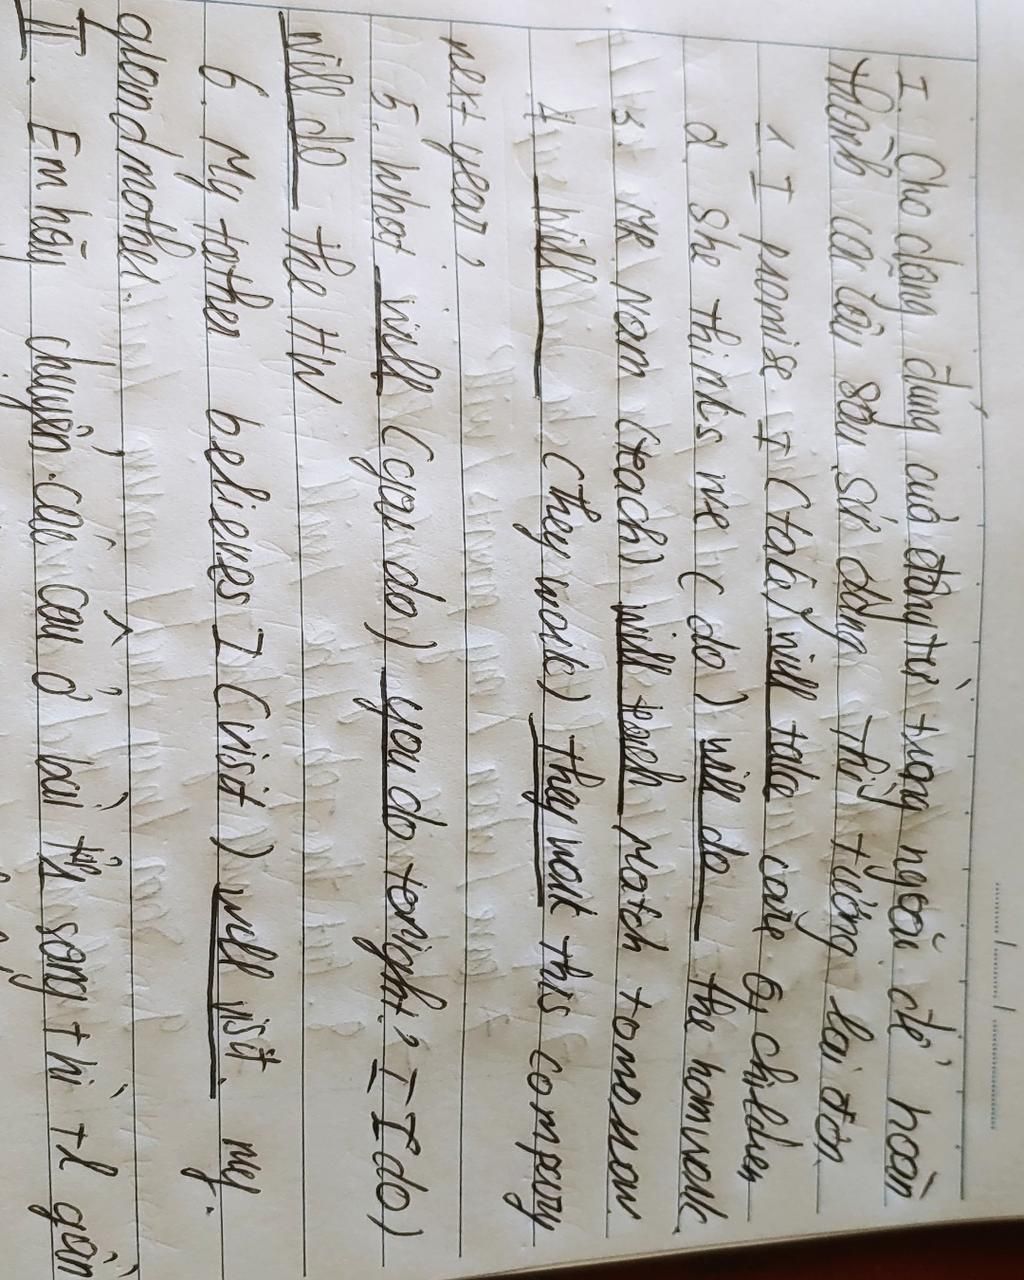 I. Cho dạng đúng của động từ trong ngoặc để hoàn
thành các câu sau sử dụng thì tương lai đơn
1 I promise I (take) will take care of children
2 She thinks we (do) will do the homwork.
3. Mr Nam (teach) will teach Match tomorrow
4. will (they work) they work this company
next year?
5. What will (you do) you do tonight? I I do)
will do the HW
6. My father believes I (visit) will visit my
grandmother.
II. Em hãy chuyển các câu ở bài tập sang thì tl gần